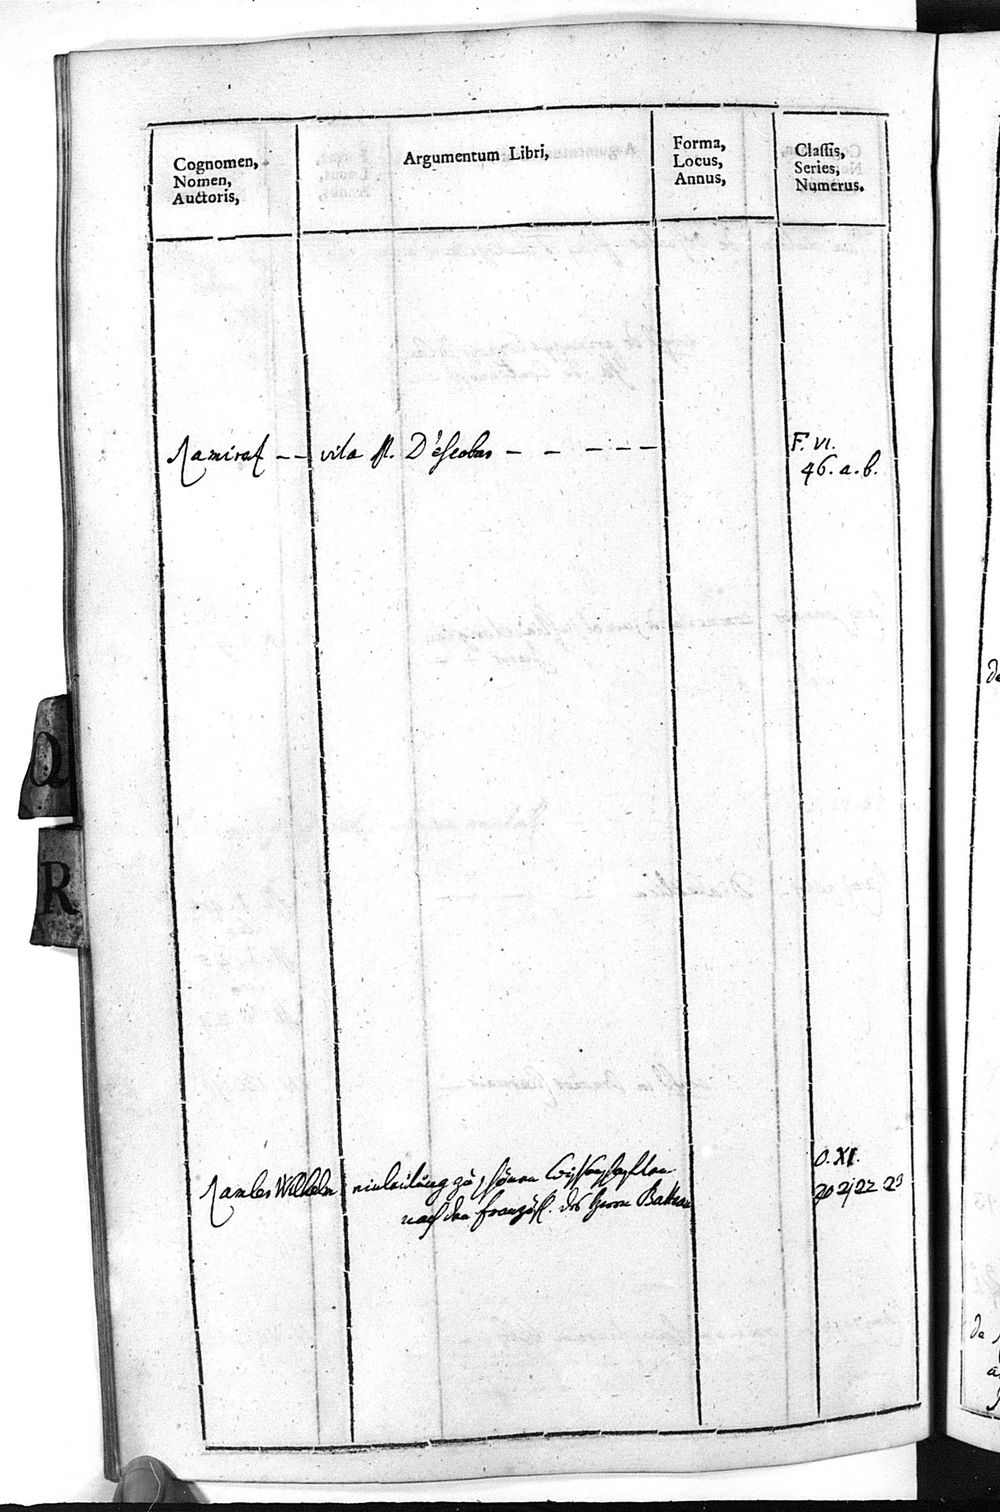 Cognomen,
Nomen,
Auctoris,
Argumentum Libri,
Forma,
Locus,
Annus,
Classis,
Series,
Numerus.
Ramiraf - - vita P. D'escobar - - - - -
F. VI.
46. a. b.
Q
R
Ramler Wilhelm einleitung zu schönen Wissenschaften
nach dem französ. des Herrn Batteau
O. XI.
20 21 22 23
de